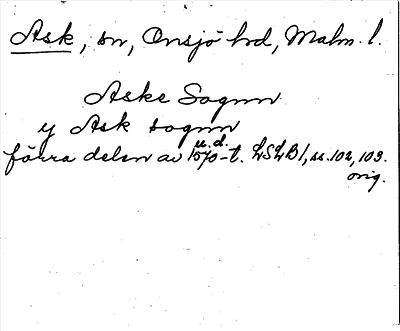 Ask, sn, Onsjö hd, Malm. l.
Aske Sognn
y Ask sognn
u. d.
förra delen av 1570-t. LSLB 1, ss. 102, 103.
orig.